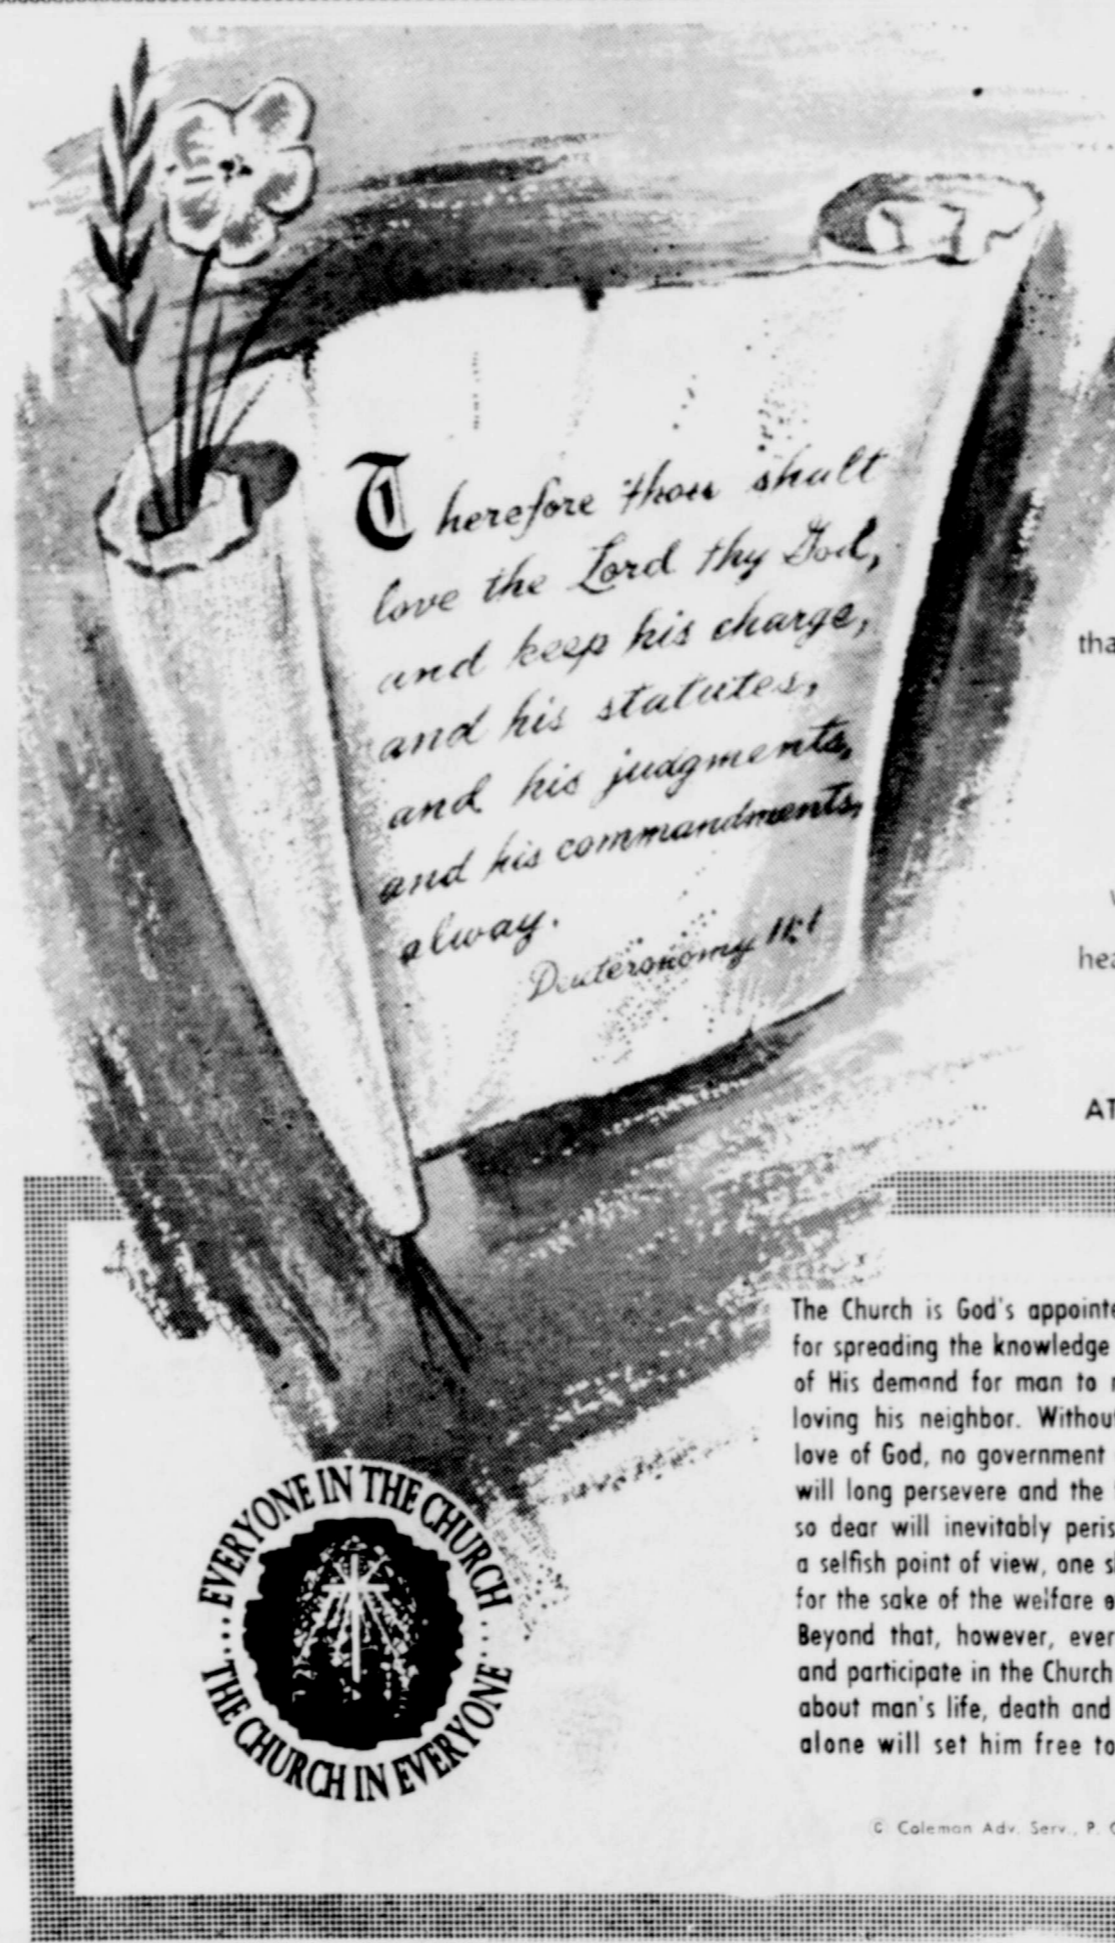 Therefore thou shalt
love the Lord thy God,
and keep his charge,
and his statutes,
and his judgments,
and his commandments,
alway.
Deuteronomy 11:1
tha
hea
AT
The Church is God's appointe
for spreading the knowledge
of His demand for man to r
loving his neighbor. Without
love of God, no government
will long persevere and the
so dear will inevitably peris
a selfish point of view, one s
for the sake of the welfare o
Beyond that, however, ever
and participate in the Church
about man's life, death and
alone will set him free to
EVERYONE IN THE CHURCH
...THE CHURCH IN EVERYONE...
© Coleman Adv. Serv., P. O